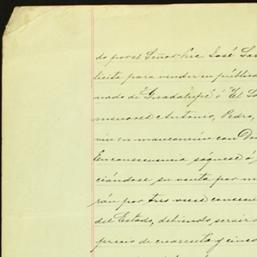 do por el Señor Lic. José Sar
licita para vender en pública
nado de Guadalupe ó El So
menores de Antonio, Pedro,
ven en mancomún con Don
En consecuencia sáquese á
ciándose su venta por m
rán por tres veces consecu
del Estado, debiendo servir d
precio de cuarenta y cinco